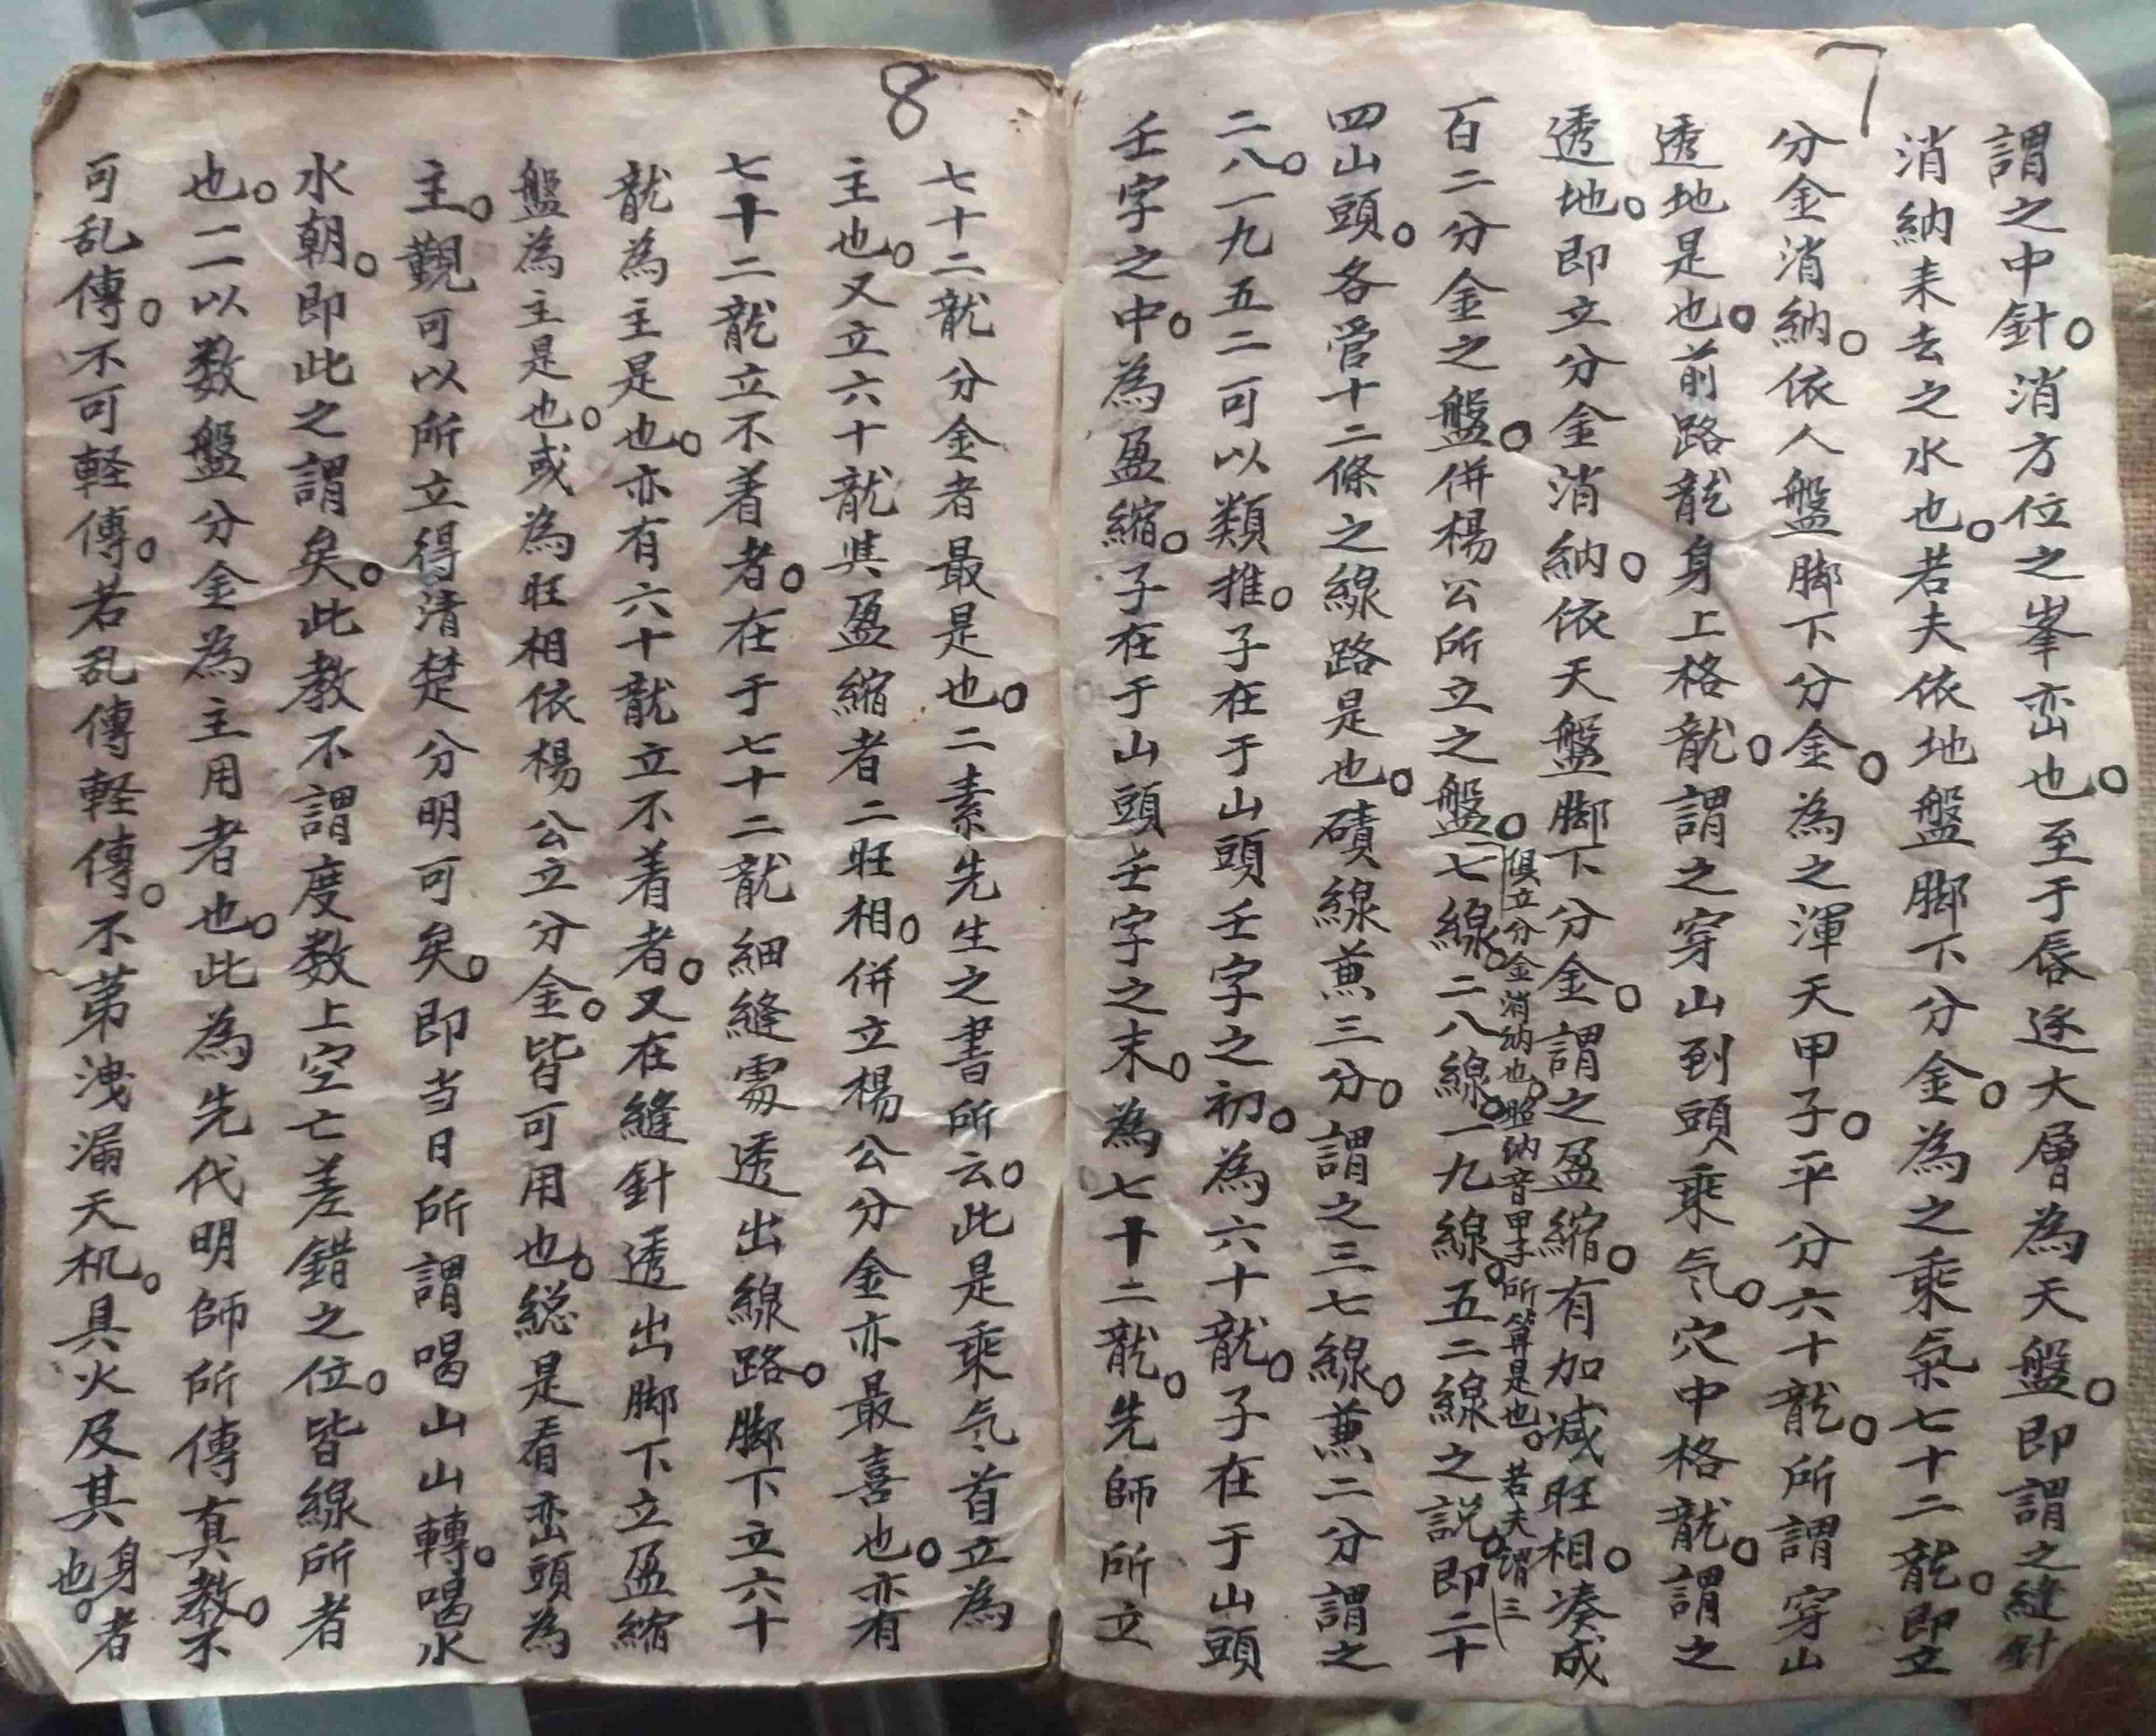 7
謂之中針。消方位之峯峦也。至于唇逐大層為天盤。即謂之縫針
消納耒去之水也。若夫依地盤脚下分金。為之乘氣七十二龍。即立
分金消納。依人盤脚下分金。為之渾天甲子。平分六十龍。所謂穿山
透地是也。前路龍身上格龍。謂之穿山到頭乘气。穴中格龍。謂之
透地。即立分金消納。依天盤脚下分金。謂之盈縮。有加减旺相。凑成
俱立分金消納也。照纳音甲子所算是也。若夫謂三
百二分金之盤。併楊公所立之盤。七線。二八線。一九線。五二線之説。即二十
四山頭。各管十二條之線路是也。磧線兼三分。謂之三七線。兼二分謂之
二八。一九五二可以類推。子在于山頭壬字之初。為六十龍。子在于山頭
壬字之中。為盈縮。子在于山頭壬字之末。為七十二龍。先師所立
8
七十二龍分金者最是也。二素先生之書所云。此是乘气首立為
主也。又立六十龍與盈縮者二旺相。併立楊公分金亦最喜也。亦有
七十二龍立不着者。在于七十二龍細縫處透出線路。脚下立六十
龍為主是也。亦有六十龍立不着者。又在縫針透出脚下立盈縮
盤為主是也。或為旺相依楊公立分金。皆可用也。総是看峦頭為
主。觀可以所立得清楚分明可矣。即当日所謂喝山山轉。喝水
水朝。即此之謂矣。此教不謂度数上空亡差錯之位。皆線所者
也。二以数盤分金為主用者也。此為先代明師所傳真教。不
可乱傳。不可軽傳。若乱傳軽傳。不苐洩漏天机。具火及其身者也。